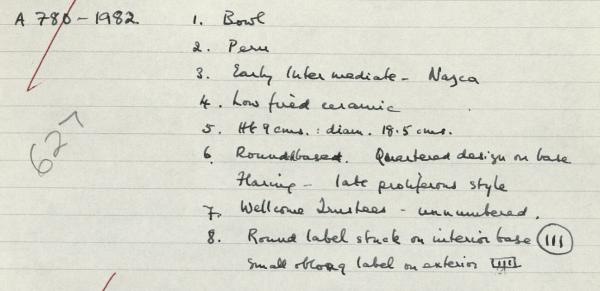 A 780-1982
1. Bowl
2. Peru
3. Early Intermediate - Nasca
4. Low fired ceramic
5. Ht 9 cms. : diam. 18.5 cms.
6. Roundbased. Quartered design on base
Flaring - late proliferous style
7. Wellcome Trustees - unnumbered.
8. Round label stuck on interior base (111)
Small oblong label on exterior
627